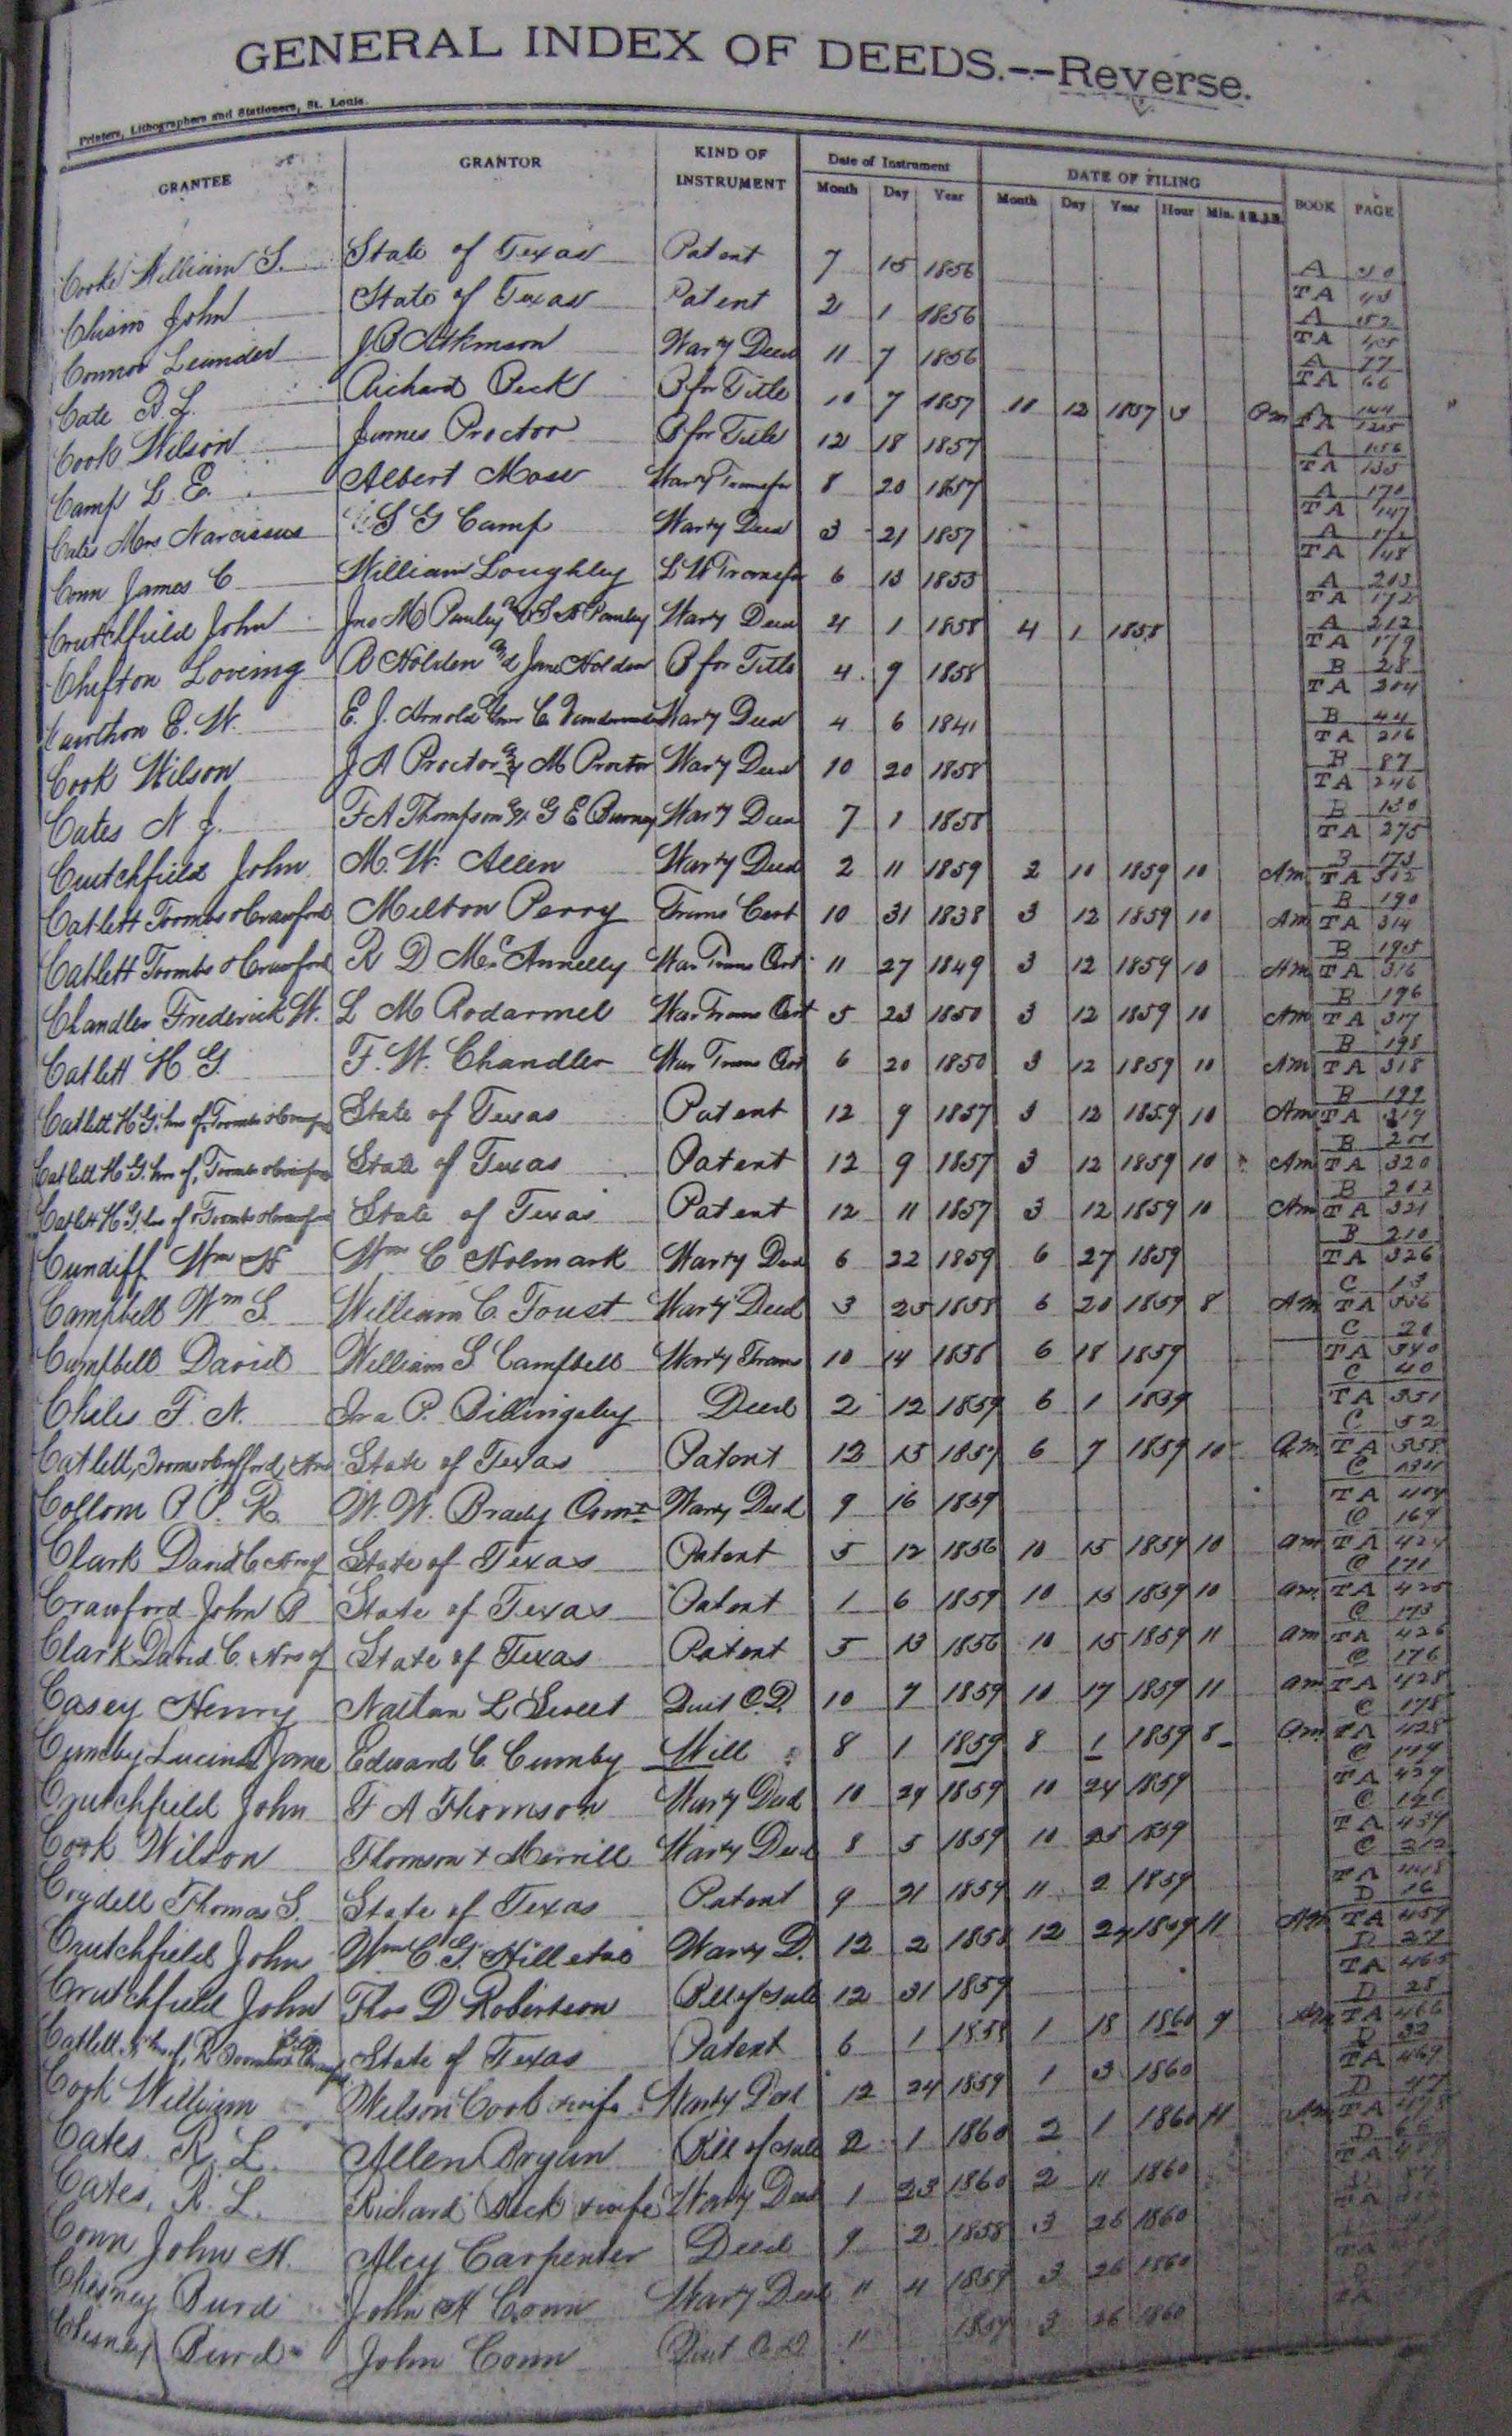 GENERAL INDEX OF DEEDS.--Reverse.
Printers, Lithographers and Stationers, St. Louis.
GRANTEE GRANTOR KIND OF INSTRUMENT Date of Instrument DATE OF FILING BOOK PAGE
Month Day Year Month Day Year Hour Min.
Cooke William S. State of Texas Patent 7 15 1856 A 50
TA 43
Chism John State of Texas Patent 2 1 1856 A 52
TA 45
Connor Leander J.B Atkinson Warty Deed 11 7 1856 A 77
TA 66
Cate R L. Richard Peck B for Title 10 7 1857 10 12 1857 3 Pm A 144
TA 125
Cook Wilson James Proctor B for Title 12 18 1857 A 156
TA 135
Camp L E. Albert Mose Warty Transfer 8 20 1857 A 170
TA 147
Cates Mrs Narcissus S G Camp Warty Deed 3 21 1857 A 172
TA 148
Conn James C William Loughley L W Transfer 6 13 1855 A 203
TA 172
Crutchfield John Jno M Pauley and S A Pauley Warty Deed 4 1 1858 4 1 1858 A 212
TA 179
Chifton Loving R Holden and Jane Holden B for Title 4 9 1858 B 28
TA 204
Cawthon E. W. E. J. Arnold Warty Deed 4 6 1841 B 44
TA 216
Cook Wilson J A Proctor & M Proctor Warty Deed 10 20 1858 B 87
TA 246
Cates N J. F A Thompson & G E Burney Warty Deed 7 1 1858 B 130
TA 275
Crutchfield John M. W. Allen Warty Deed 2 11 1859 2 11 1859 10 Am B 173
TA 302
Catlett Toombs & Crawford Milton Perry Trans Cert 10 31 1838 3 12 1859 10 Am B 190
TA 314
Catlett Toombs & Crawford R D McAnnelly War Trans Cert 11 27 1849 3 12 1859 10 Am B 195
TA 316
Chandler Frederick W. L M Rodarmel War Trans Cert 5 23 1850 3 12 1859 10 Am B 196
TA 317
Catlett H G. F. W. Chandler War Trans Cert 6 20 1850 3 12 1859 10 Am B 198
TA 318
Catlett H G. hrs of, Toombs & Crawford State of Texas Patent 12 9 1857 3 12 1859 10 Am B 199
TA 319
Catlett H G. hrs of, Toombs & Crawford State of Texas Patent 12 9 1857 3 12 1859 10 Am B 201
TA 320
Catlett H G. hrs of & Toombs & Crawford State of Texas Patent 12 11 1857 3 12 1859 10 Am B 202
TA 321
Cundiff Wm H Wm C Holmark Warty Deed 6 22 1859 6 27 1859 B 210
TA 326
Campbell Wm S. William C. Foust Warty Deed 3 25 1858 6 20 1859 8 Am C 13
TA 336
Campbell David William S Campbell Warty Trans 10 14 1858 6 18 1859 C 20
TA 340
Chiles F. N. Ira P. Billingsley Deed 2 12 1859 6 1 1859 C 40
TA 351
Catlett, Tooms & Crafford, Hrs State of Texas Patent 12 15 1857 6 7 1859 10 Am C 52
TA 358
Collom P. P. R. W. W. Brady Comr Warty Deed 9 16 1859 C
TA 404
Clark David C Hrs of State of Texas Patent 5 12 1856 10 15 1859 10 am C 169
TA 424
Crawford John B State of Texas Patent 1 6 1859 10 15 1859 10 am C 171
TA 425
Clark David C. Hrs of State of Texas Patent 5 13 1856 10 15 1859 11 am C 173
TA 426
Casey Henry Nathan L Sweet Quit C. D. 10 7 1859 10 17 1859 11 am C 176
TA 428
Cumby Lucinda Jane Edward C. Cumby Will 8 1 1859 8 1 1859 8 am C 178
TA 428
Crutchfield John F A Thomson Warty Deed 10 24 1859 10 24 1859 C 179
TA 429
Cook Wilson Thomson & Merrill Warty Deed 8 5 1859 10 25 1859 C
TA 434
Crydell Thomas S. State of Texas Patent 9 21 1859 11 2 1859 C 212
TA 448
Crutchfield John Wm C. G. Hill et ux Warty D. 12 2 1858 12 24 1859 11 Am D 16
TA 459
Crutchfield John Thos D Robertson Bill of Sale 12 31 1859 D 27
TA 465
Catlett, hrs of, R Toombs & Crawford State of Texas Patent 6 1 1858 1 18 1860 9 Am D 28
TA 466
Cook William Wilson Cook & wife Warty Deed 12 24 1859 1 3 1860 D 32
TA 469
Cates R. L. Allen Bryan Bill of Sale 2 1 1860 2 1 1860 11 Am D 47
TA 478
Cates, R. L. Richard Peck & wife Warty Deed 1 23 1860 2 11 1860 D
TA
Conn John H. Aley Carpenter Deed 9 2 1858 3 26 1860
TA
Chesney Burd John H Conn Warty Deed 11 4 1859 3 26 1860
TA
Chisney Burd John Conn Quit C. D. 11 1859 3 26 1860
TA